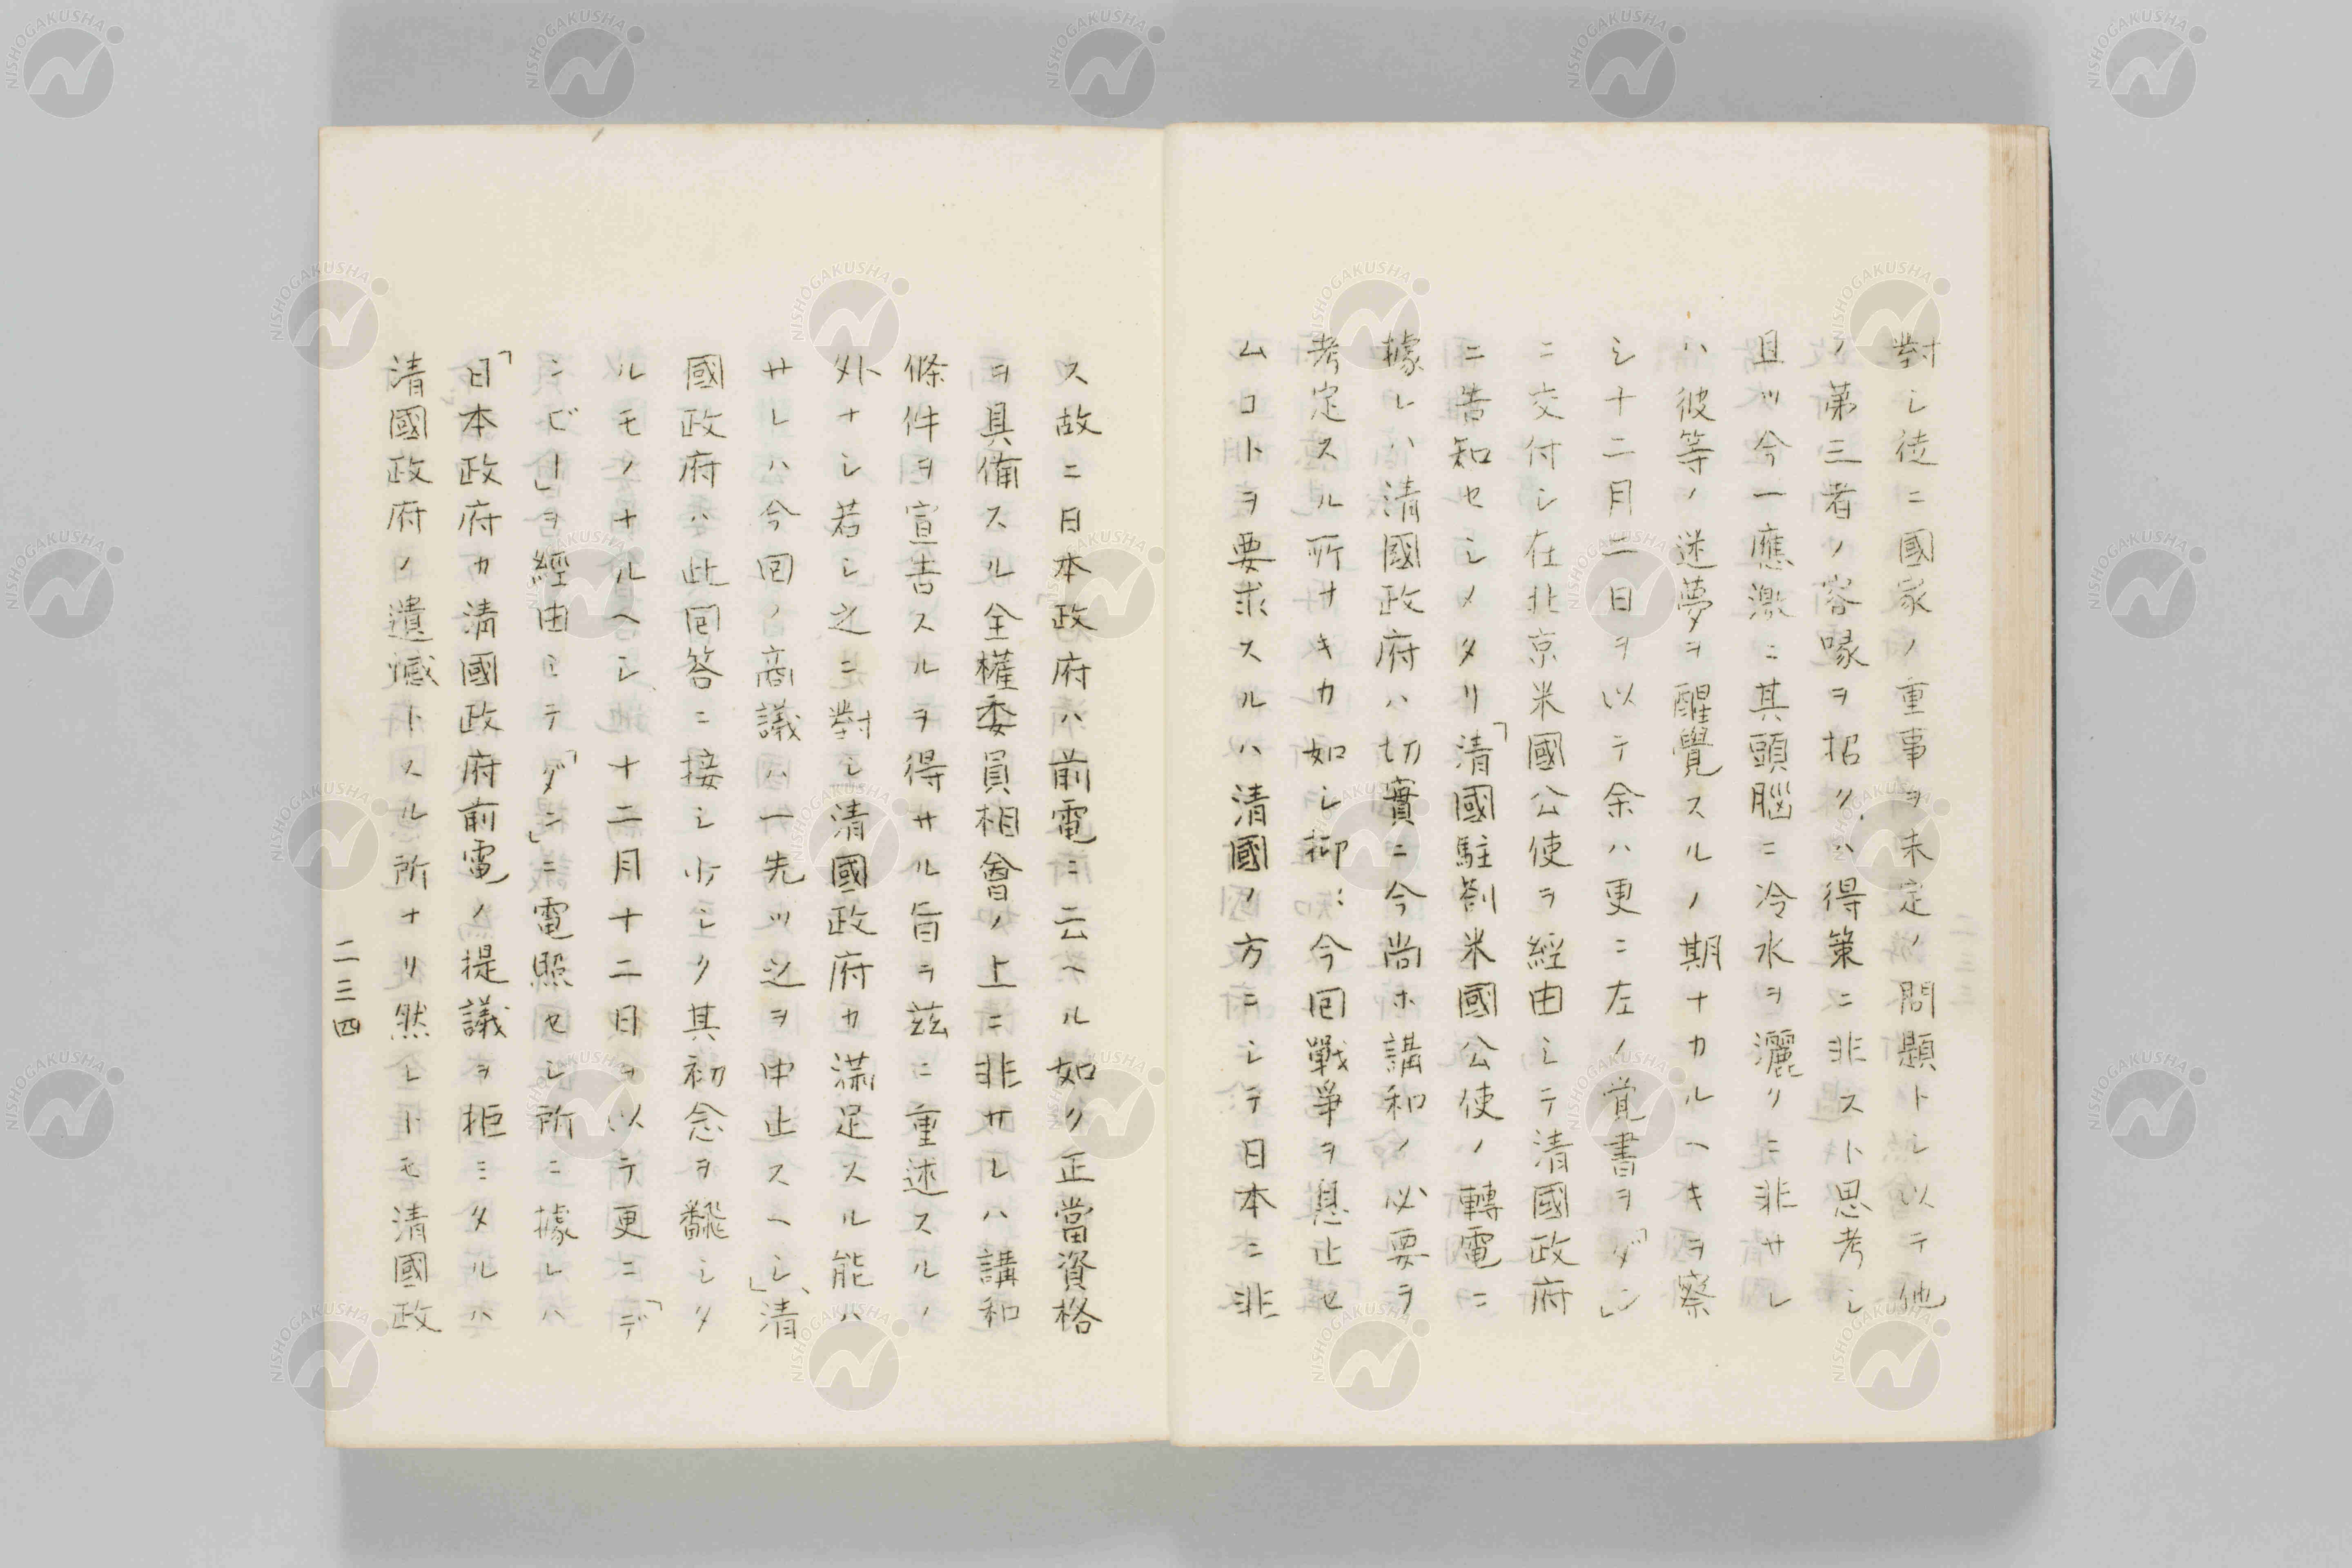 對シ徒ニ國家ノ重事ヲ未定ノ問題トシ以テ他
ノ第三者ノ容喙ヲ招クハ得策ニ非スト思考シ
且ツ今一應激ニ其頭腦ニ冷水ヲ灑クニ非サレ
ハ彼等ノ迷夢ヲ醒覺スルノ期ナカルヘキヲ察
シ十二月二日ヲ以テ余ハ更ニ左ノ覚書ヲ「ダン」
ニ交付シ在北京米國公使ヲ經由シテ清國政府
ニ告知セシメタリ「清國駐劄米國公使ノ轉電ニ
據レハ清國政府ハ切實ニ今尚ホ講和ノ必要ヲ
考定スル所ナキカ如シ抑ミ今回戰爭ヲ息止セ
ムコトヲ要求スルハ清國ノ方ニシテ日本ニ非
ス故ニ日本政府ハ前電ニ云ヘル如ク正當資格
ヲ具備スル全權委員相會ノ上ニ非サレハ講和
條件ヲ宣告スルヲ得サル旨ヲ茲ニ重述スルノ
外ナシ若シ之ニ對シ清國政府カ滿足スル能ハ
サレハ今回ノ商議ハ一先ツ之ヲ中止スヘシ」、清
國政府ハ此回答ニ接シ少シク其初念ヲ飜シタ
ルモノナルヘシ、十二月十二日ヲ以テ更ニ「デ
ンビー」ヲ經由シテ「ダン」ニ電照セシ所ニ據レハ
「日本政府カ清國政府前電ノ提議ヲ拒ミタルハ
清國政府ノ遺憾トスル所ナリ然レトモ清國政
二三四
NISHOGAKUSHA